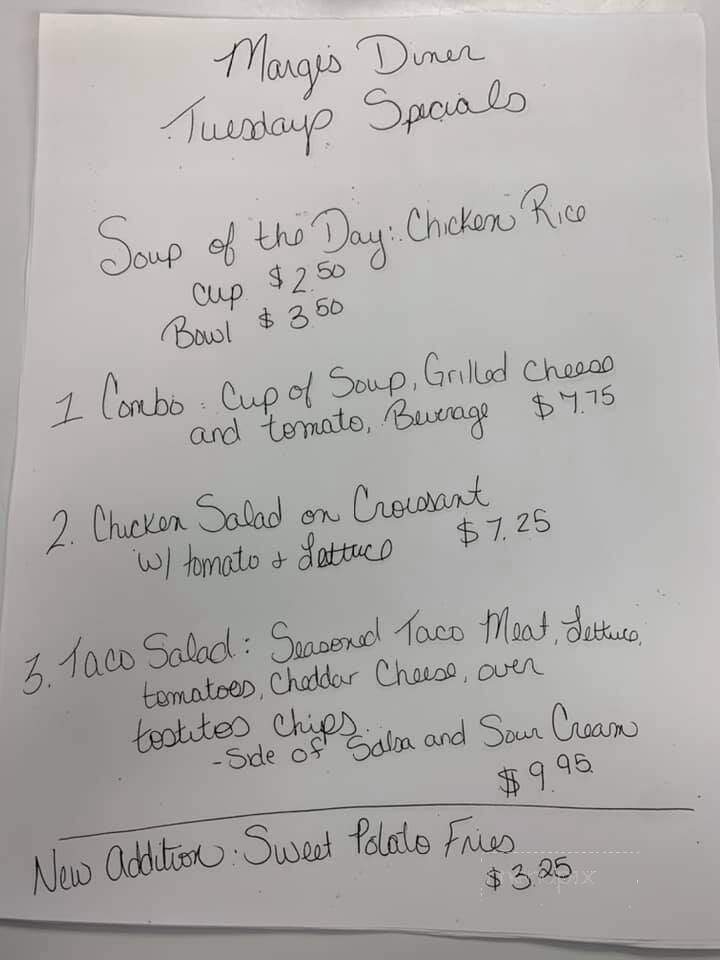 Marge's Diner
Tuesdays Specials
Soup of the Day: Chicken Rice
Cup $2.50
Bowl $3.50
1 Combo: Cup of Soup, Grilled Cheese
and tomato, Beverage $7.75
2. Chicken Salad on Croissant
w/ tomato & Lettuce $7.25
3. Taco Salad: Seasoned Taco Meat, Lettuce,
tomatoes, Cheddar Cheese, over
tostitos chips.
- Side of Salsa and Sour Cream
$9.95
New Addition: Sweet Potato Fries
$3.25